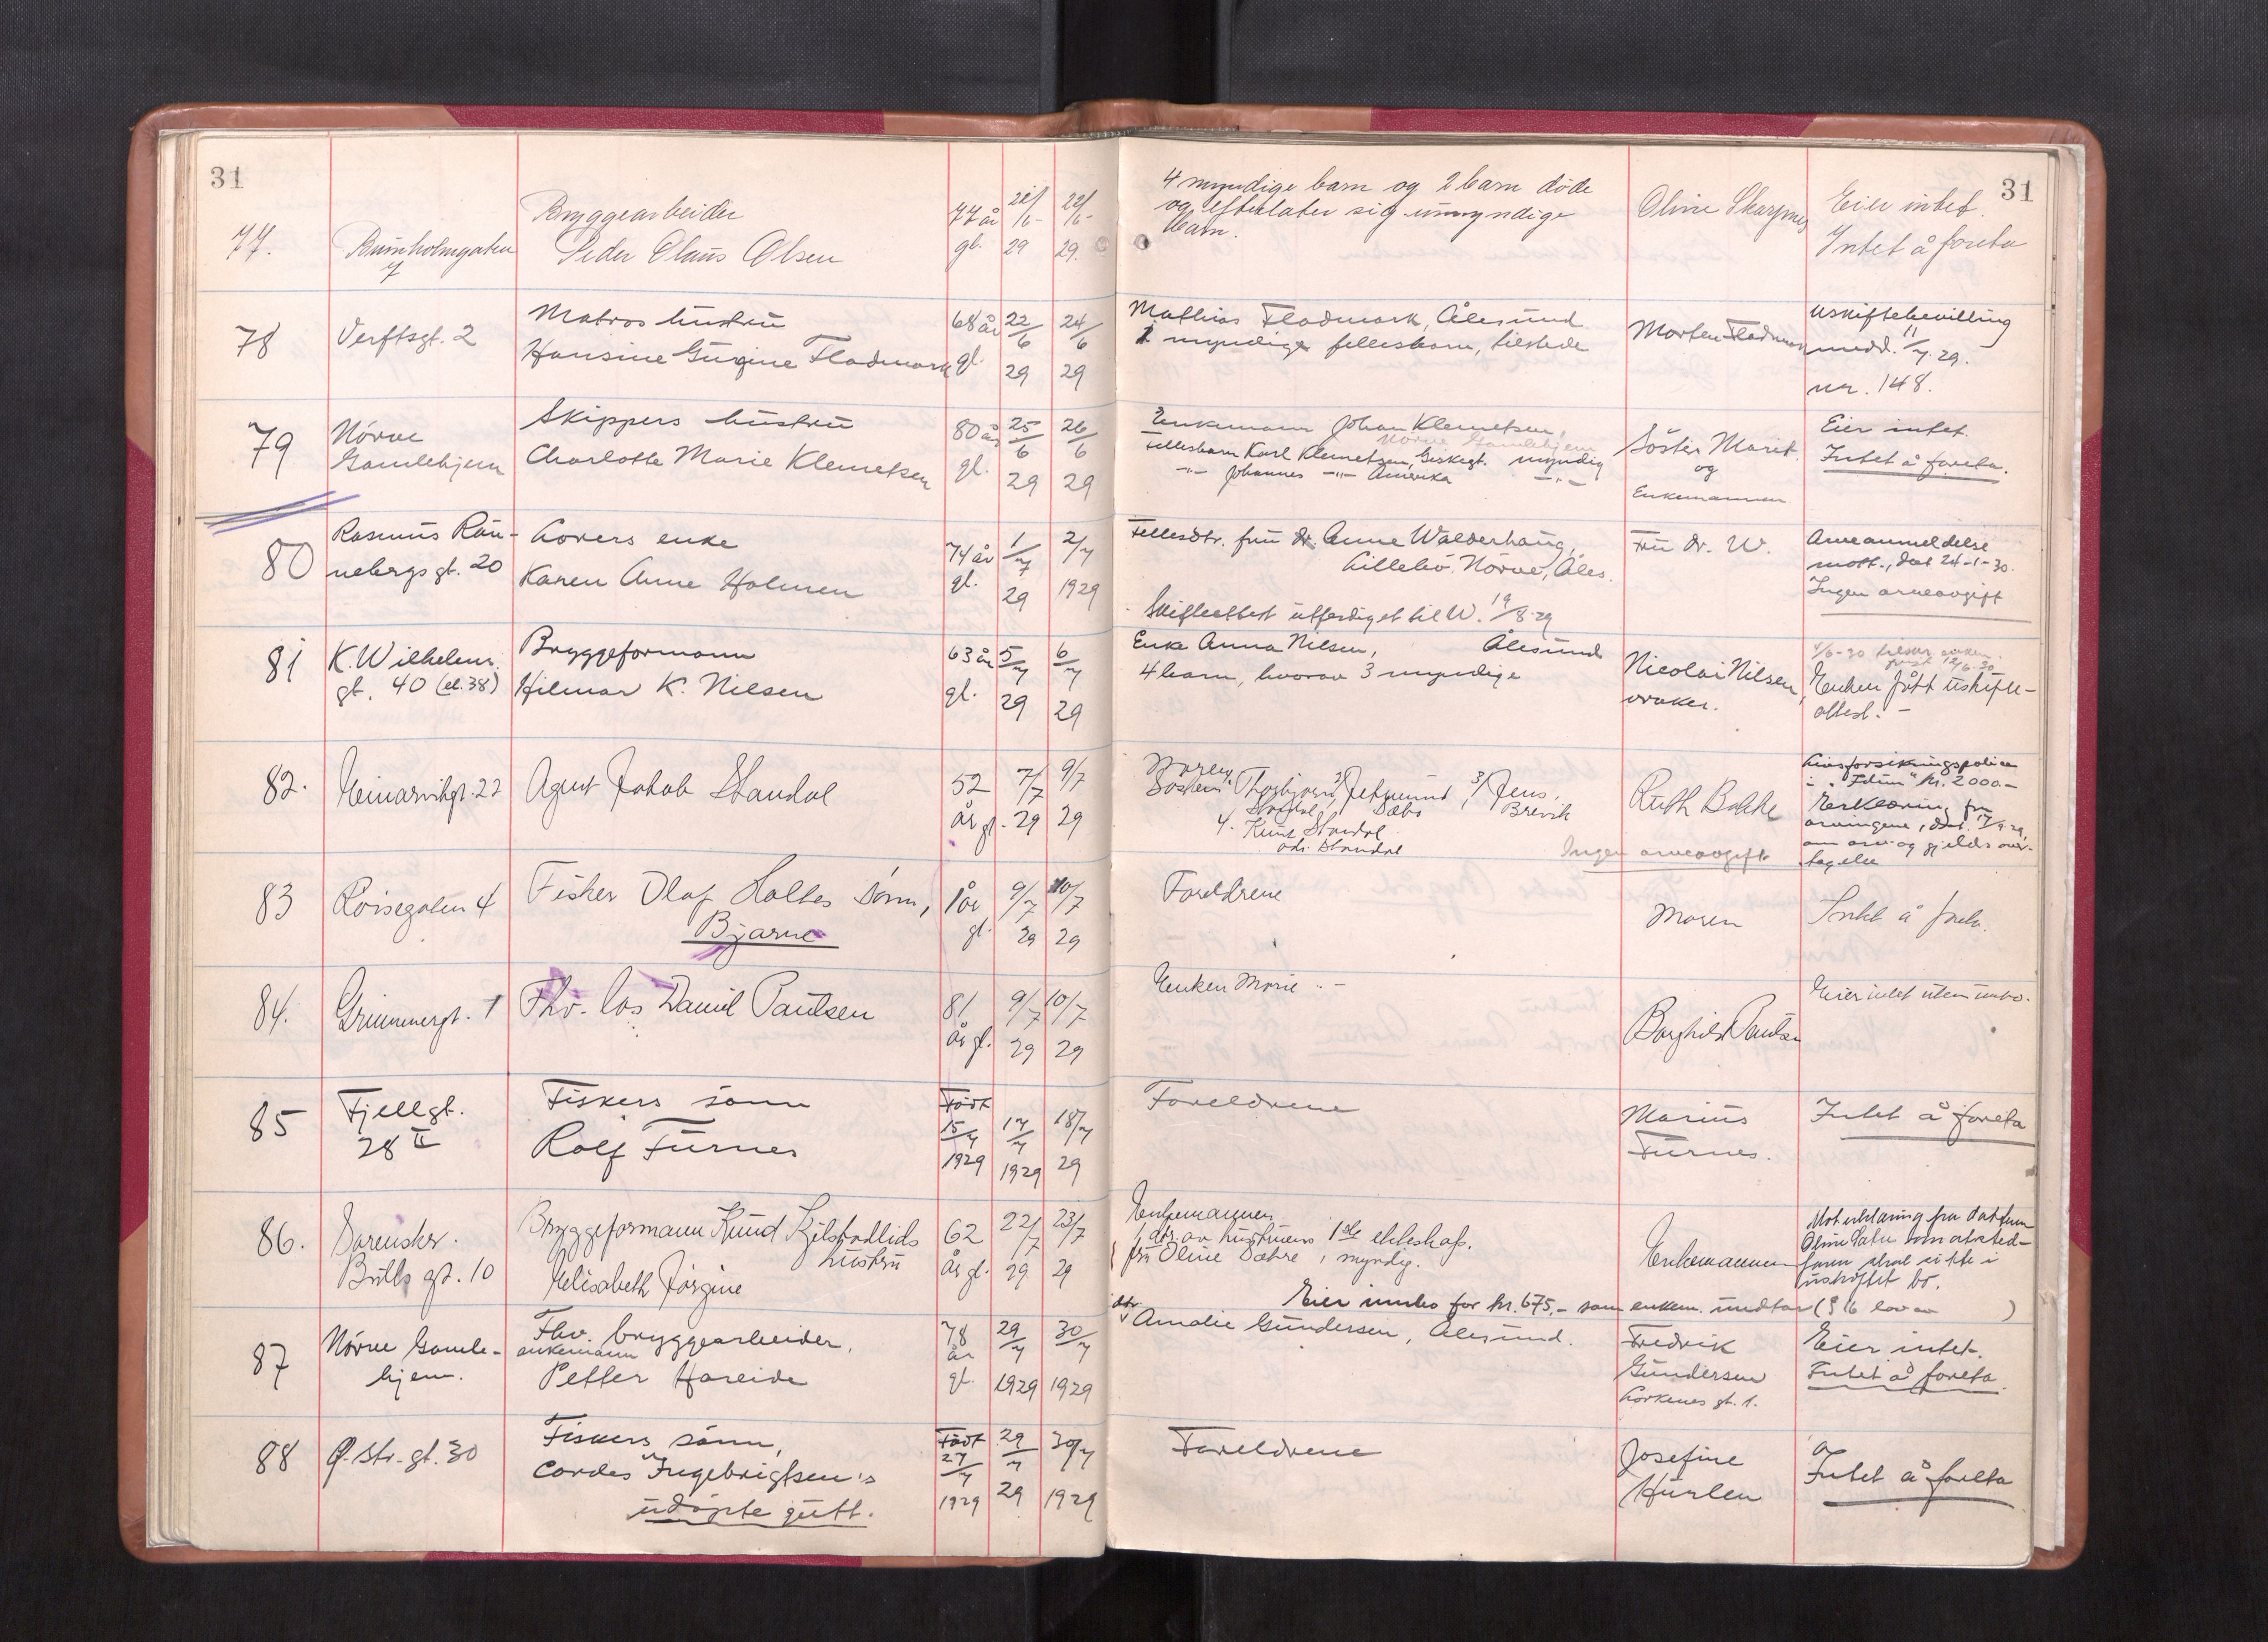 31
77.
Bryggearbeider
Peder Olaus Olsen
77 år
gl.
29
22/
29.
4 myndige barn og 2 barn døde
og efterlater sig umyndige
barn.
Oline
Eier intet.
Intet å foreta
31
78
Verftsgt. 2
Matros hustru
Hansine Gurine Fladmark
68 år
gl.
22/6
29
24/6
29
Mathias Fladmark, Ålesund
myndige fellesbarn, tilstede
Morten Fladmark
Uskiftebevilling
medd. 11/7.29.
nr. 148.
79
Nörve
Gamlehjem
Skippers hustru
Charlotte Marie Klemetsen
80 år
gl.
25/6
29
26/6
29
Enkemann Johan Klemetsen,
Nörve Gamlehjem
Fellesbarn Karl Klemetsen, Giskegt. myndig
-"- Johannes -"- Amerika -"-
Söster Marit
og
Enkemannen
Eier intet.
Intet å foreta.
80
Rasmus Rön-
nebergs gt. 20
Karen Anne Holmen
enke
74 år
gl.
1/7
29
2/7
1929
Fellesdtr. fru dr. Anne Walderhaug,
Lillebö. Nörve, Åles.
Skifteattest utferdiget til W. 19/8.29
Fru dr. W.
Arveanmeldelse
mott., dat. 24-1-30.
Ingen arveavgift
81
K. Wilhelms
gt. 40 (el. 38)
Bryggeformann
Hilmar K. Nilsen
63 år
gl.
5/7
29
6/7
29
Enke Anna Nilsen, Ålesund
4 barn, hvorav 3 myndige
Nicolai Nilsen,
vraker.
Enken fått uskifte-
attest. -
82.
Agent Jakob Standal
52
år gl.
7/7
29
9/7
29
Thorbjørn,
2/
3/ Jens,
Brevik
4. Knut Standal
Ruth Bakke
Livsforsikringspolice
i "Idun" kr. 2000.-
Erklæring fra
arvingene, dat. 17/9.29,
om arv og gjelds over-
tagelse
Ingen arveavgift
83
Röisegaten 4
Fisker Olaf Holtes sönn,
Bjarne
1 år
gl.
9/7
29
10/7
29
Foreldrene
Moren
Intet å foreta.
84.
Grimmergt. 1
Fhv. los Daniel Paulsen
81
år gl.
9/7
29
10/7
29
Enken Marie. -
Borghild Paulsen
Eier intet uten innbo.
85
Fjellgt.
28 II
Fiskers sönn
Rolf Furnes
Födt
15/7
1929
17/7
1929
18/7
29
Foreldrene
Marius
Furnes.
Intet å foreta
86.
Bulls gt. 10
Bryggeformann Knud Kjelstadlids
hustru
Elisabeth Jørgine
62
år gl.
22/7
29
23/7
29
Enkemannen
1 dtr. av hustruens 1ste ekteskap.
fru Oline Sætre, myndig.
Enkemannen
Mot erklæring fra datteren
Oline Sætre som
faren skal sitte i
uskiftet bo.
Eier innbo for kr. 675,- som enkem. undtar (§ 16 lov av )
87
Nörve Gamle-
hjem.
Fhv. bryggearbeider,
enkemann
Petter Hareide
78
år
gl.
29/7
1929
30/7
1929
dtr.
Amalie Gundersen, Ålesund.
Fredrik
Gundersen
Lorkenes gt. 1.
Eier intet.
Intet å foreta.
88
Ø. Str. gt. 30
Fiskers sönn,
Cordes Ingebrigtsen's
udöpte gutt.
Födt
27/7
1929
29/7
29
30/7
1929
Foreldrene
Josefine
Hurlen
Intet å foreta